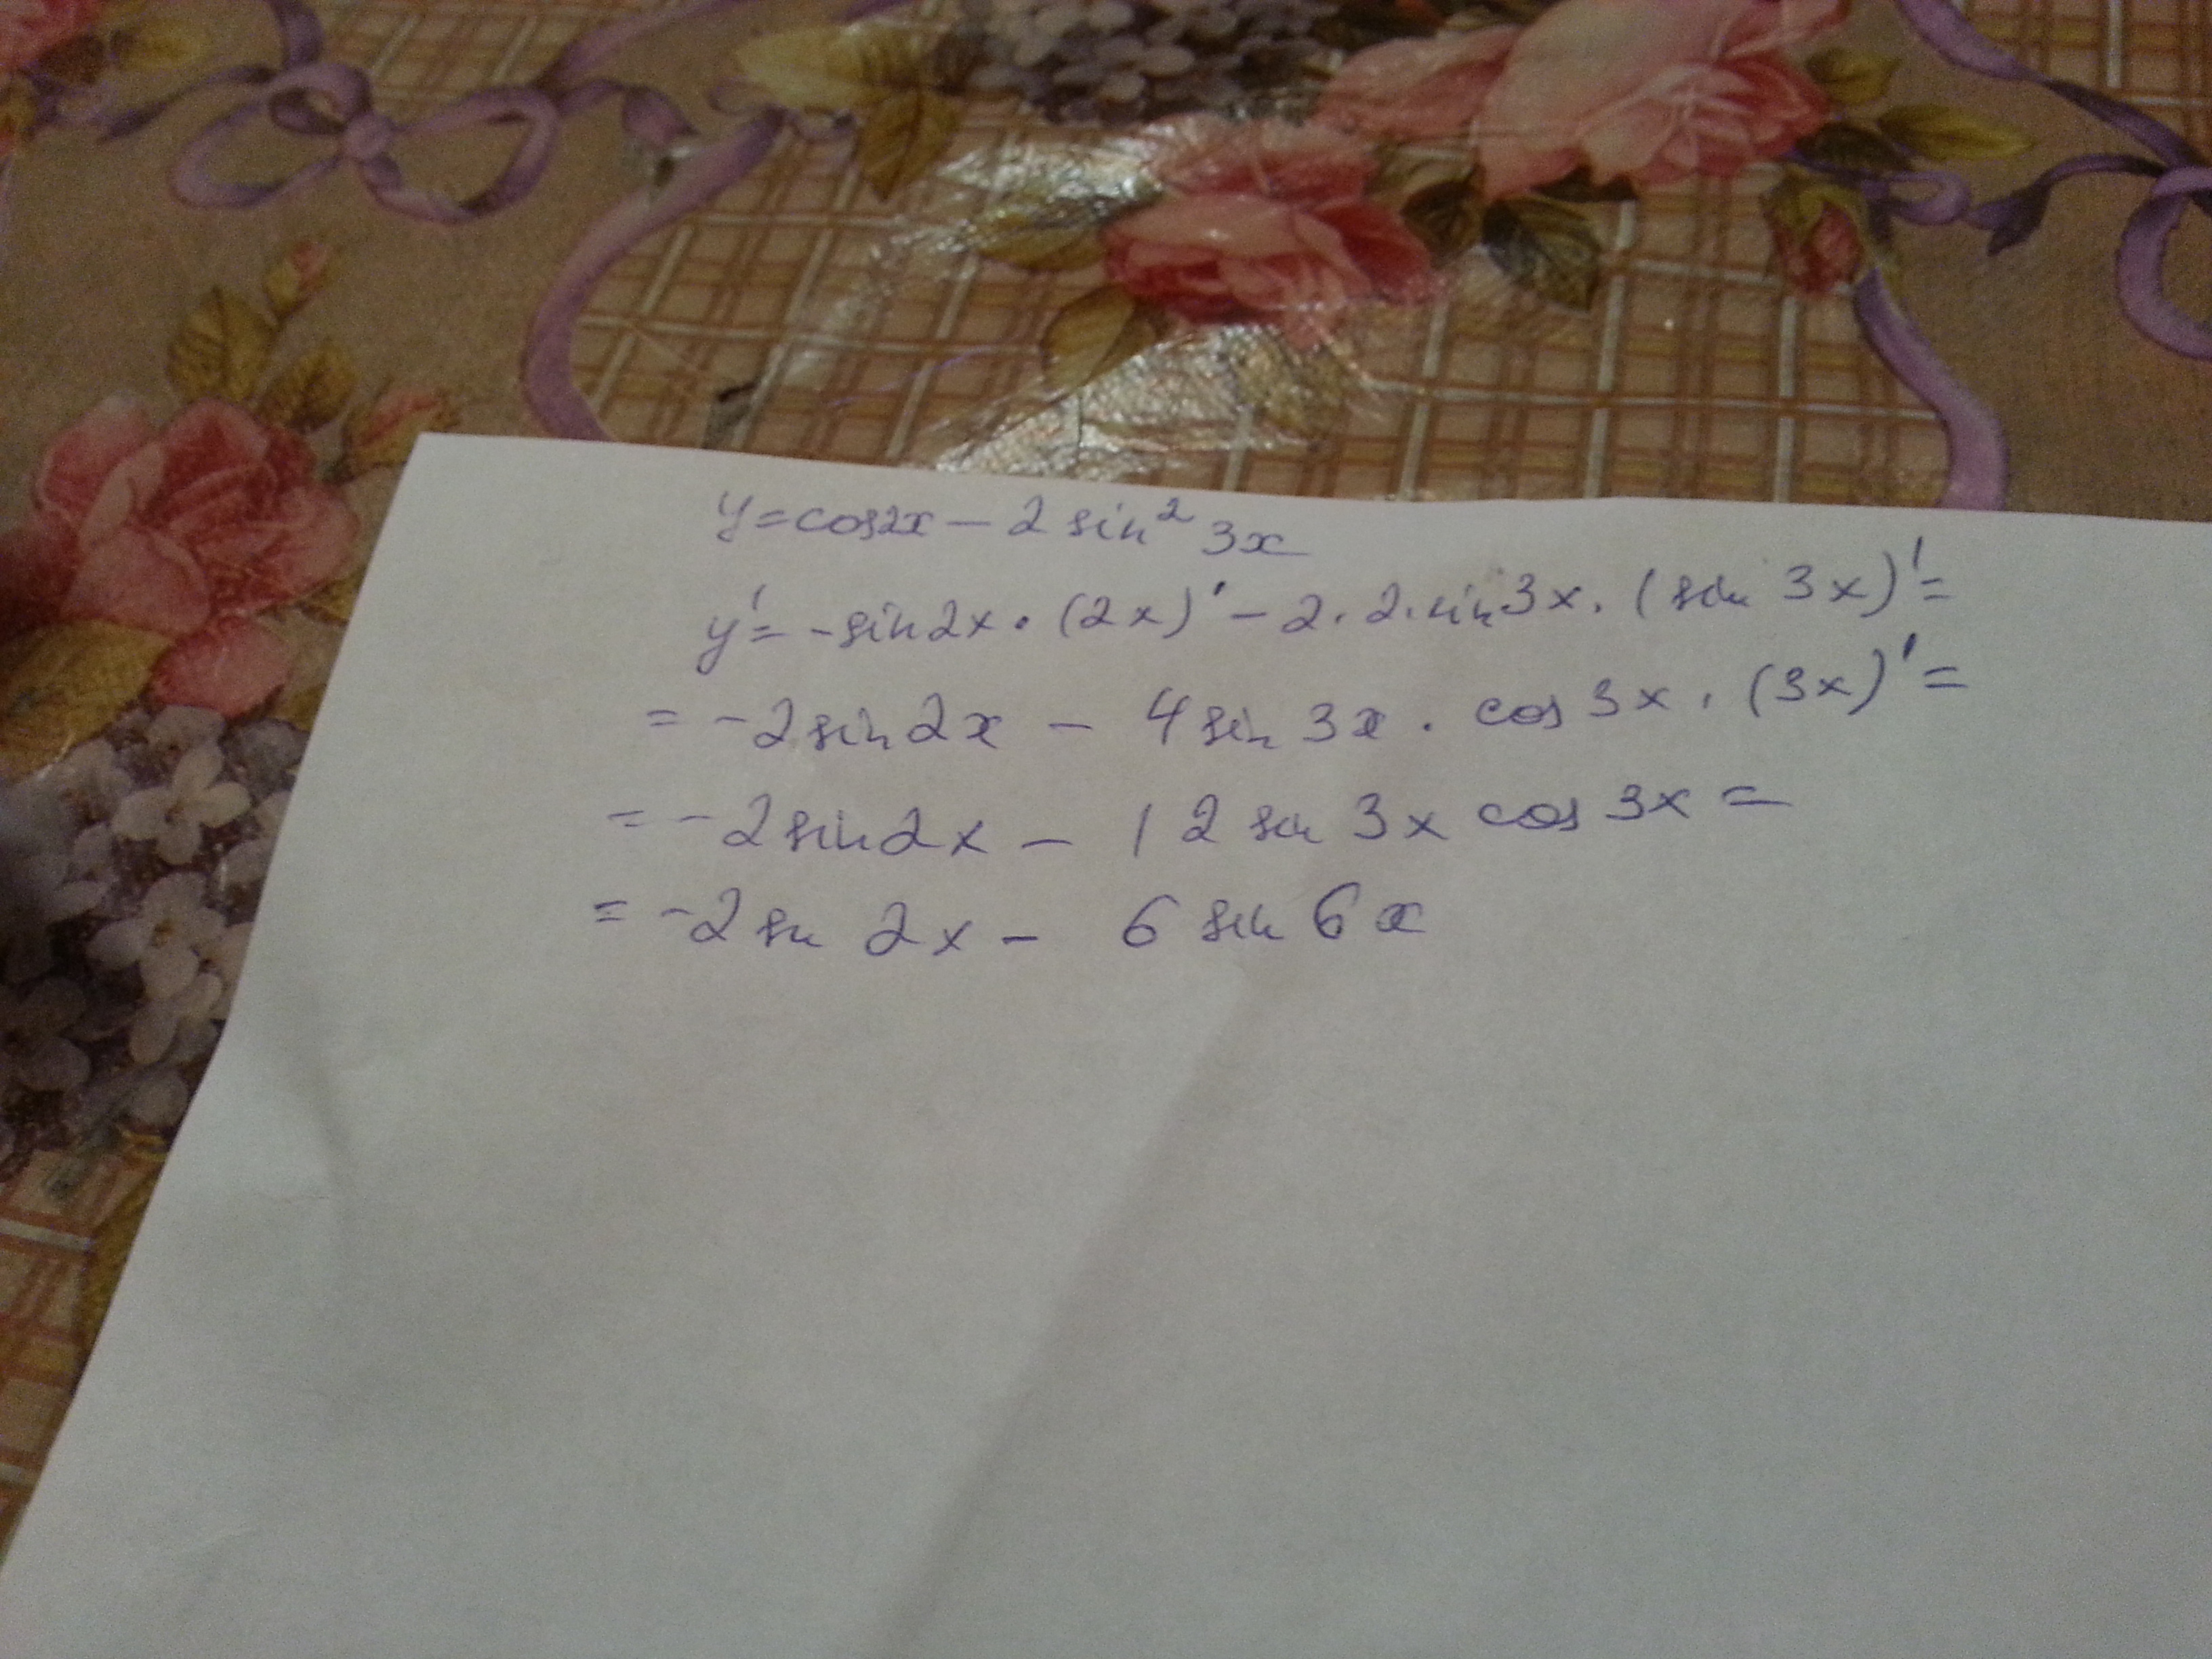 y=cos2x-2sin²3x
y'=-sin2x·(2x)'-2·2·sin3x·(sin 3x)'=
=-2sin2x-4sin3x·cos3x·(3x)'=
=-2sin2x-12sin3xcos3x=
=-2sin2x-6sin6x